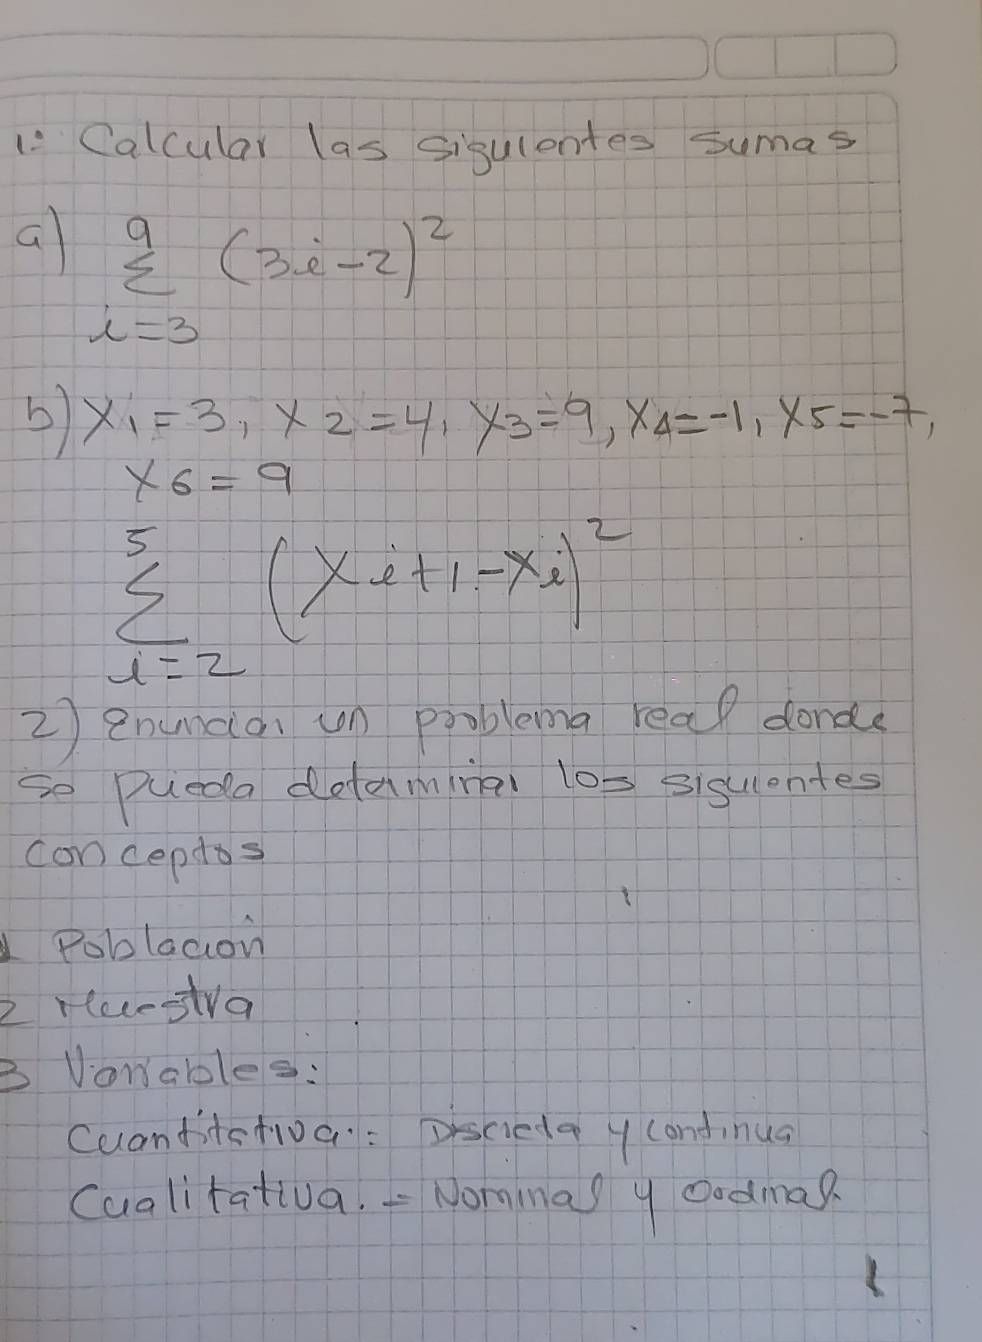 1: Calcular las siguientes sumas
a) 9
Σ (3i-2)²
i=3
b) X1=3, X2=4, X3=9, X4=-1, X5=-7,
X6=9
5
Σ (Xi+1-Xi)²
i=2
2) Enunciar un problema real donde
se pueda determinar los siguientes
conceptos
1 Población
2 Muestra
3 Variables:
Cuantitativa.= Discreta y continua
Cualitativa.= Nominal y ordinal